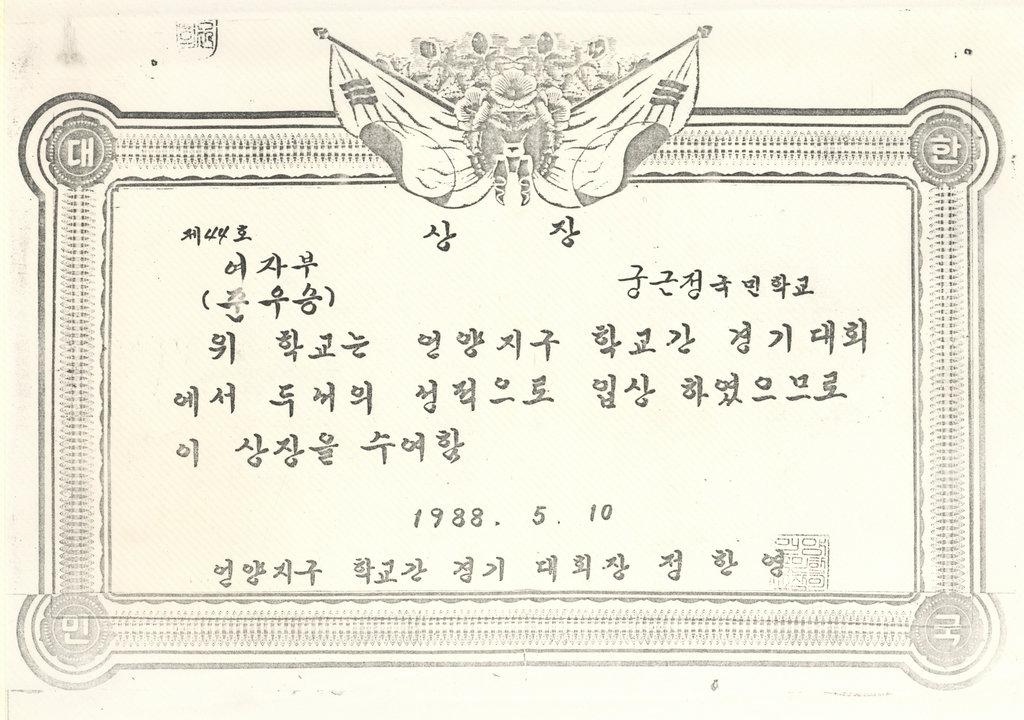 대 한
제44호
상 장
여자부
(준우승)
궁근정국민학교
위 학교는 언양지구 학교간 경기대회
에서 두서의 성적으로 입상 하였으므로
이 상장을 수여함
1988. 5. 10
언양지구 학교간 경기 대회장 정 한 영
민 국